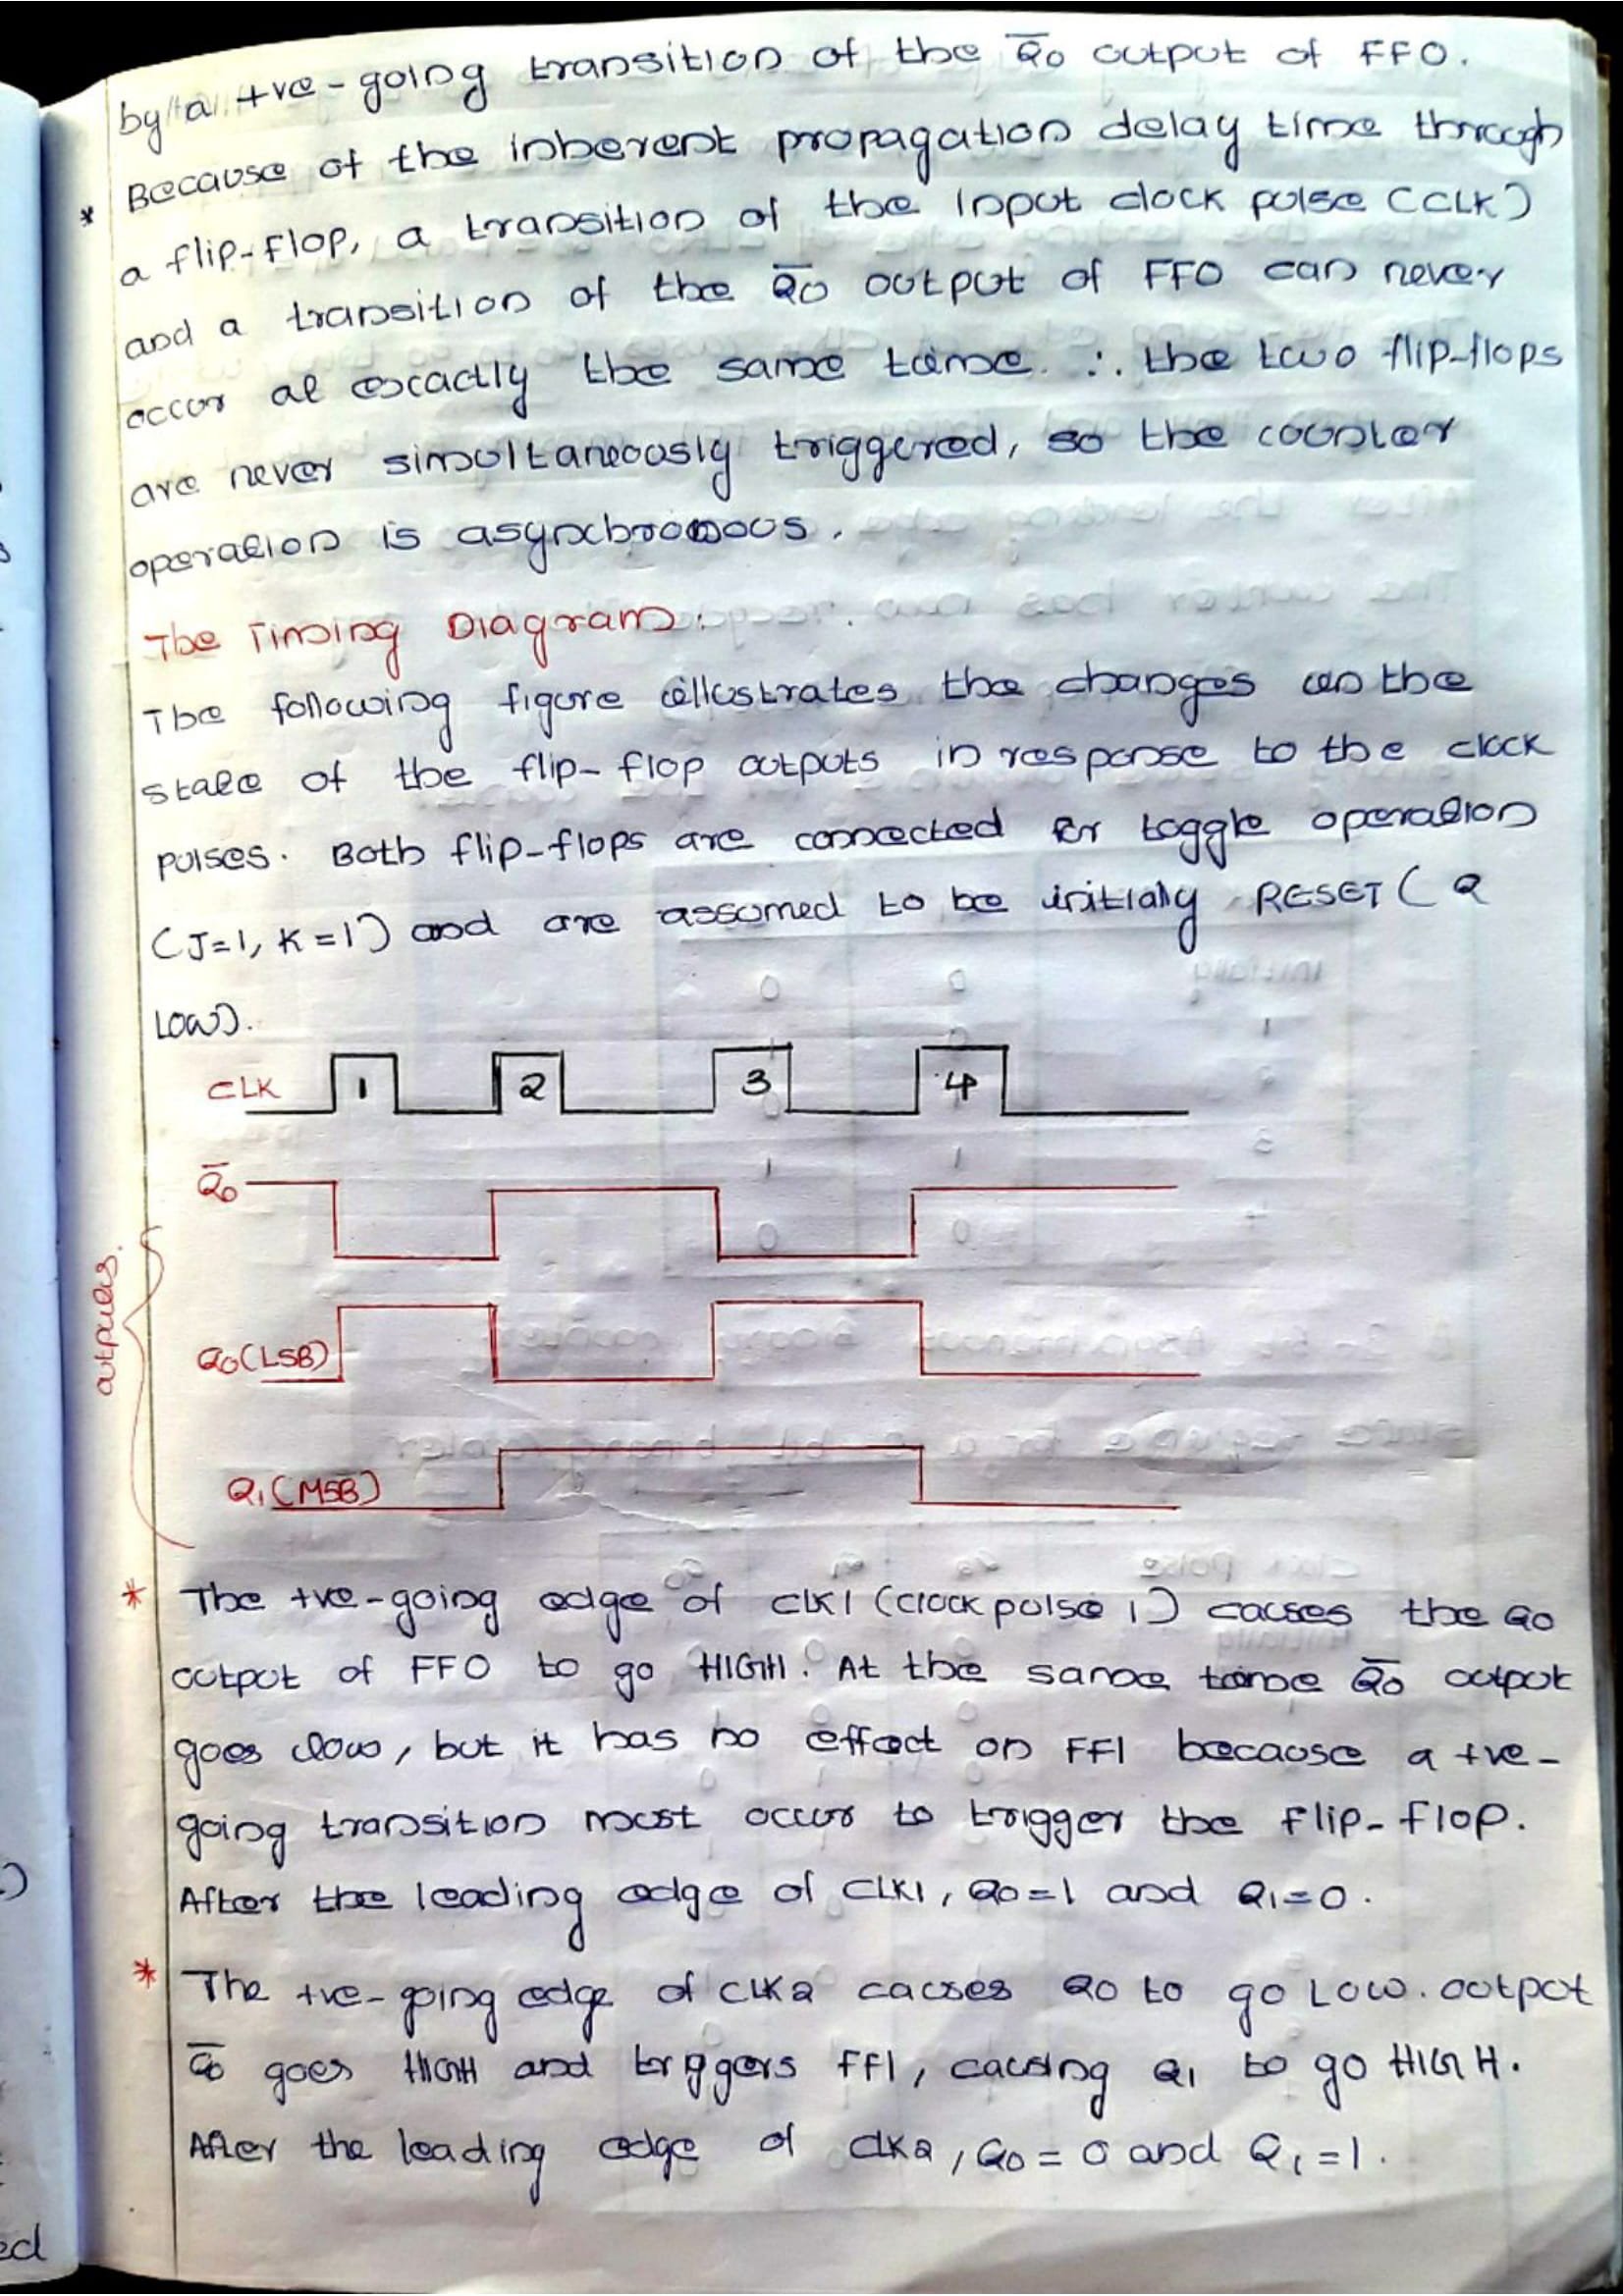 by a +ve-going transition of the Q̅0 output of FF0.
* Because of the inherent propagation delay time through
a flip-flop, a transition of the input clock pulse (CLK)
and a transition of the Q̅0 output of FF0 can never
occur at excactly the same time. ∴ the two flip-flops
are never simultaneously triggered, so the counter
operation is asynchronous.
The Timing Diagram:
The following figure illustrates the changes in the
state of the flip-flop outputs in response to the clock
pulses. Both flip-flops are connected for toggle operation
(J=1, K=1) and are assumed to be initially RESET (Q
LOW).
CLK 1 2 3 4
Q̅0
outputs.
Q0(LSB)
Q1(MSB)
* The +ve-going edge of CLK1 (clock pulse 1) causes the Q0
output of FF0 to go HIGH. At the same time Q̅0 output
goes low, but it has no effect on FF1 because a +ve-
going transition must occur to trigger the flip-flop.
After the leading edge of CLK1, Q0=1 and Q1=0.
* The +ve-going edge of CLK2 causes Q0 to go LOW. output
Q̅0 goes HIGH and triggers FF1, causing Q1 to go HIGH.
After the leading edge of CLK2, Q0=0 and Q1=1.
ed